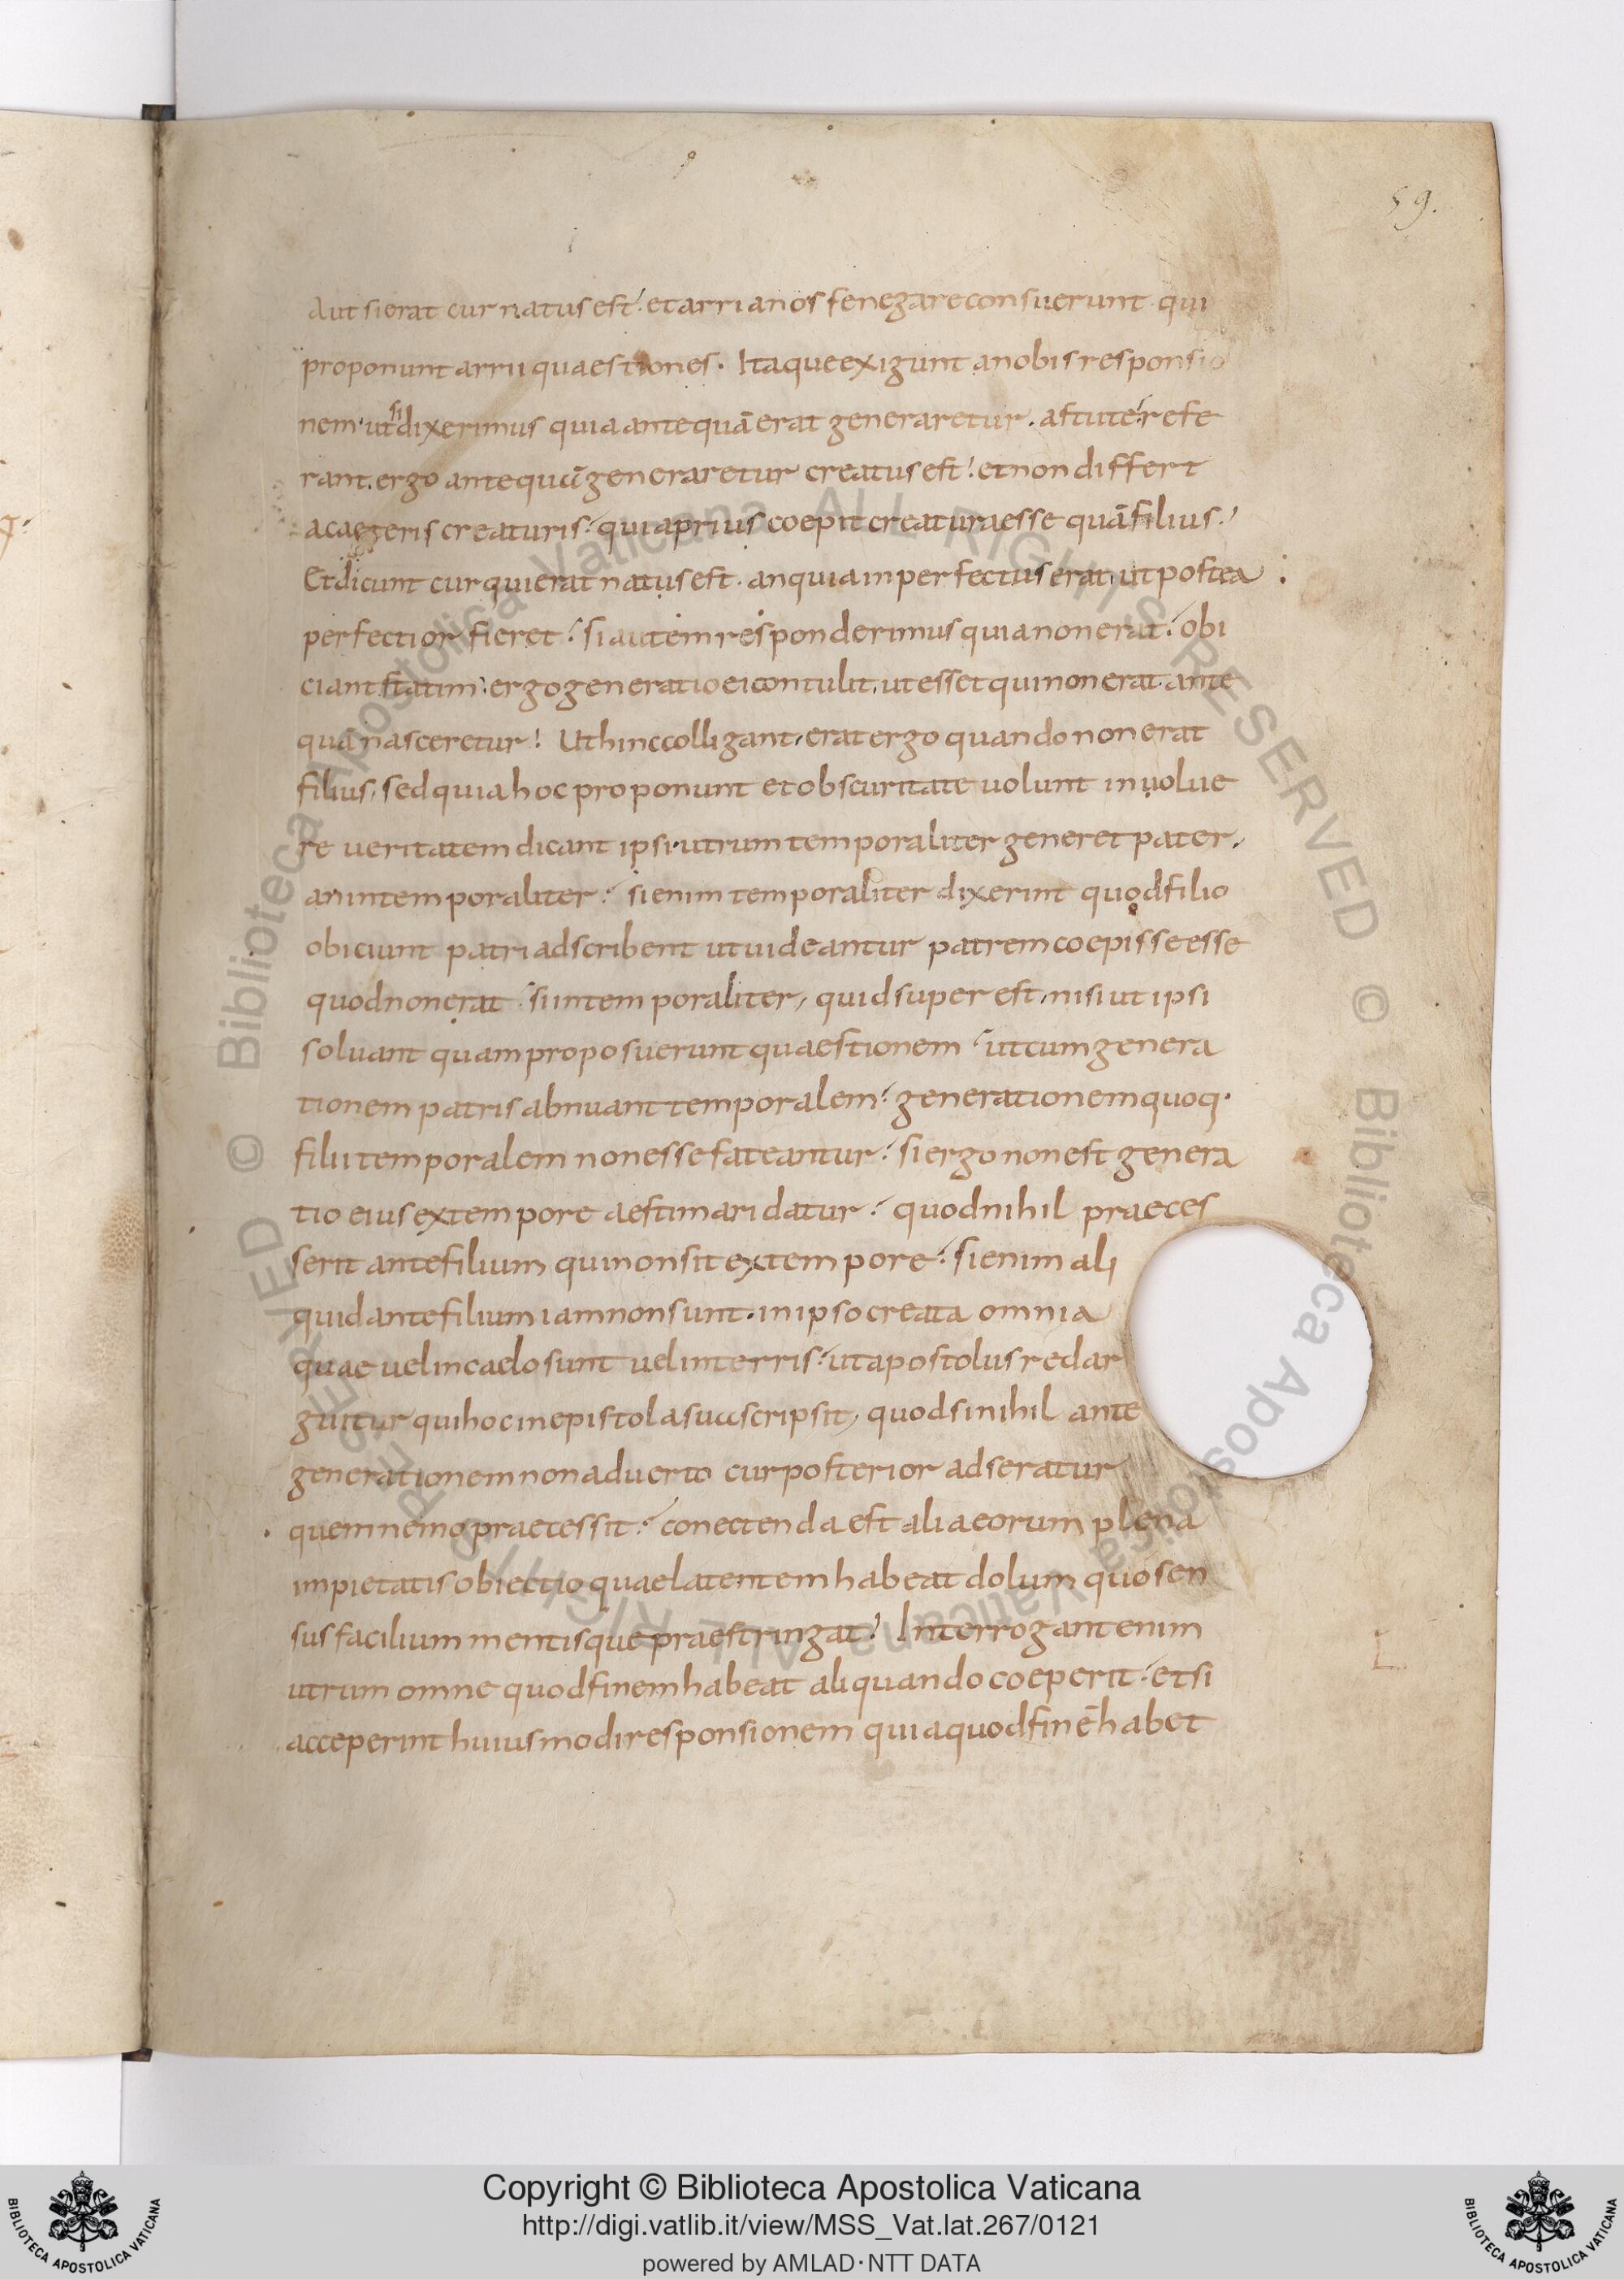 59.
Aut si erat cur natus est. et arrianos se negare consuerunt. qui
proponunt arrii quaestiones. Itaque exigunt a nobis responsio
nem. ut si dixerimus quia antequā erat generaretur. astute refe
rant. ergo antequā generaretur creatus est. et non differt
a caeteris creaturis. quia prius coepit creatura esse quā filius.
Et dicunt cur qui erat natus est. an quia inperfectus erat, ut postea
perfectior fieret. si autem responderimus quia non erat. obi
ciant statim. ergo generatio ei contulit, ut esset qui non erat ante
quā nasceretur. Ut hinc colligant, erat ergo quando non erat
filius, sed quia hoc proponunt et obscuritate uolunt inuolue
re ueritatem dicant ipsi. utrum temporaliter generet pater,
an intemporaliter. si enim temporaliter dixerint quod filio
obiciunt patri adscribent ut uideantur patrem coepisse esse
quod non erat. si intemporaliter, quid superest, nisi ut ipsi
soluant quam proposuerunt quaestionem. ut cum genera
tionem patris abnuant temporalem. generationem quoq.
filii temporalem non esse fateantur. si ergo non est genera
tio eius ex tempore aestimari datur. quod nihil praeces
serit ante filium qui non sit ex tempore. si enim ali
quid ante filium iam non sunt. in ipso creata omnia
quae uel in caelo sunt uel in terris. ut apostolus redar
guitur qui hoc in epistola sua scripsit, quod si nihil ante
generationem non aduerto cur posterior adseratur
quem nemo praecessit. conectenda est alia eorum plena
impietatis obiectio quae latentem habeat dolum quo sen
sus facilium mentisque praestringat. Interrogant enim
utrum omne quod finem habeat aliquando coeperit. et si
acceperint huiusmodi responsionem quia quod finē habet
© Biblioteca Apostolica Vaticana ALL RIGHTS RESERVED © Biblioteca Apostolica Vaticana ALL RIGHTS RESERVED
BIBLIOTECA APOSTOLICA VATICANA
Copyright © Biblioteca Apostolica Vaticana
http://digi.vatlib.it/view/MSS_Vat.lat.267/0121
powered by AMLAD·NTT DATA
BIBLIOTECA APOSTOLICA VATICANA